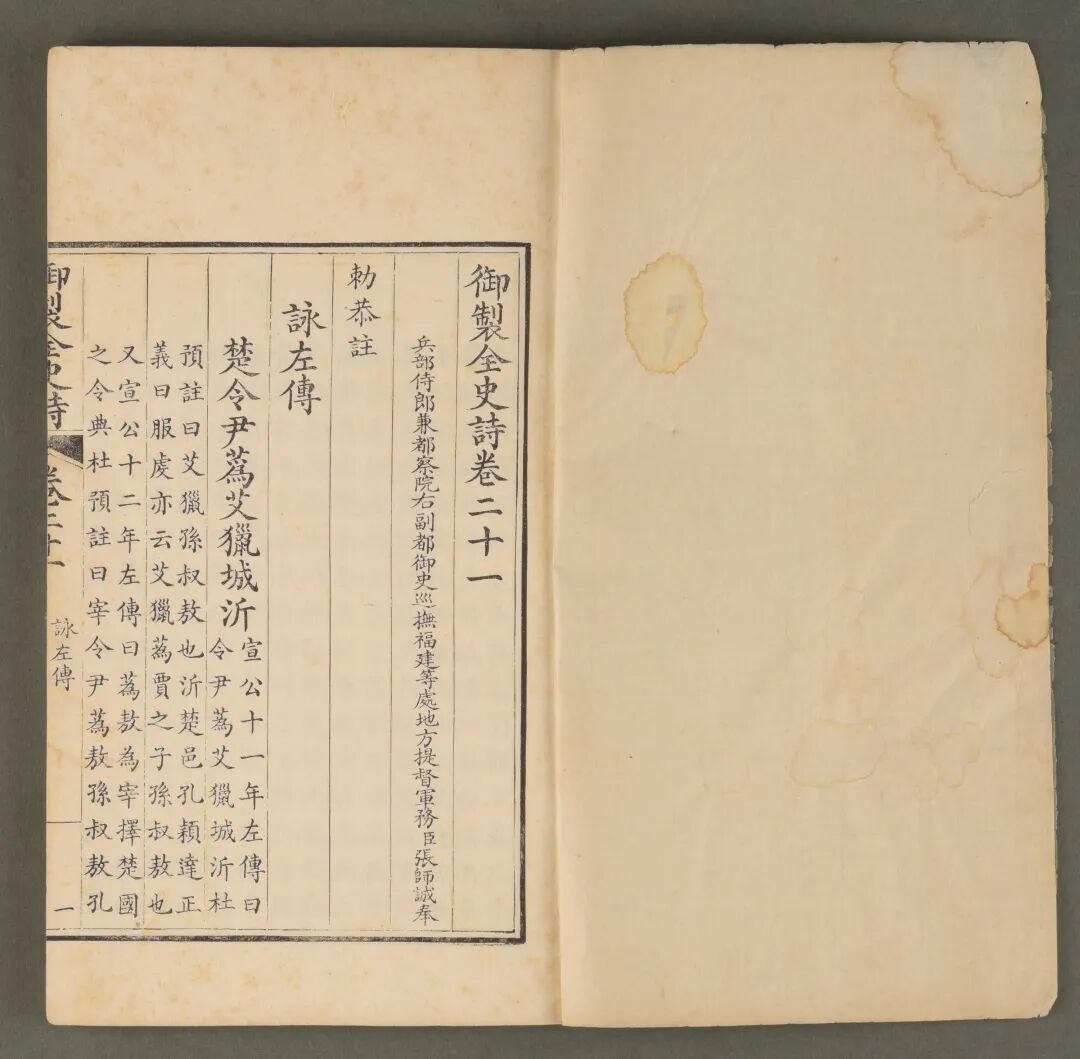 御製全史詩卷二十一
兵部侍郎兼都察院右副都御史巡撫福建等處地方提督軍務臣張師誠奉
勅恭註
詠左傳
楚令尹蔿艾獵城沂
宣公十一年左傳曰
令尹蔿艾獵城沂杜
預註曰艾獵孫叔敖也沂楚邑孔穎達正
義曰服虔亦云艾獵蔿賈之子孫叔敖也
又宣公十二年左傳曰蔿敖為宰擇楚國
之令典杜預註曰宰令尹蔿敖孫叔敖孔
御製全史詩 卷二十一 詠左傳 一